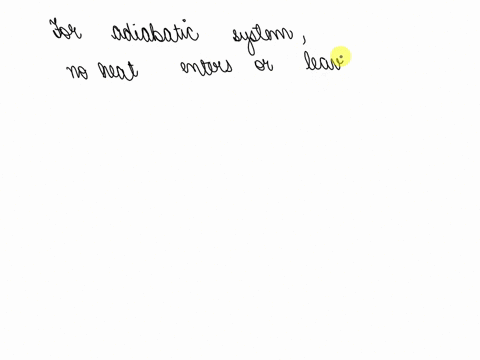 For adiabatic system,
no heat enters or leav